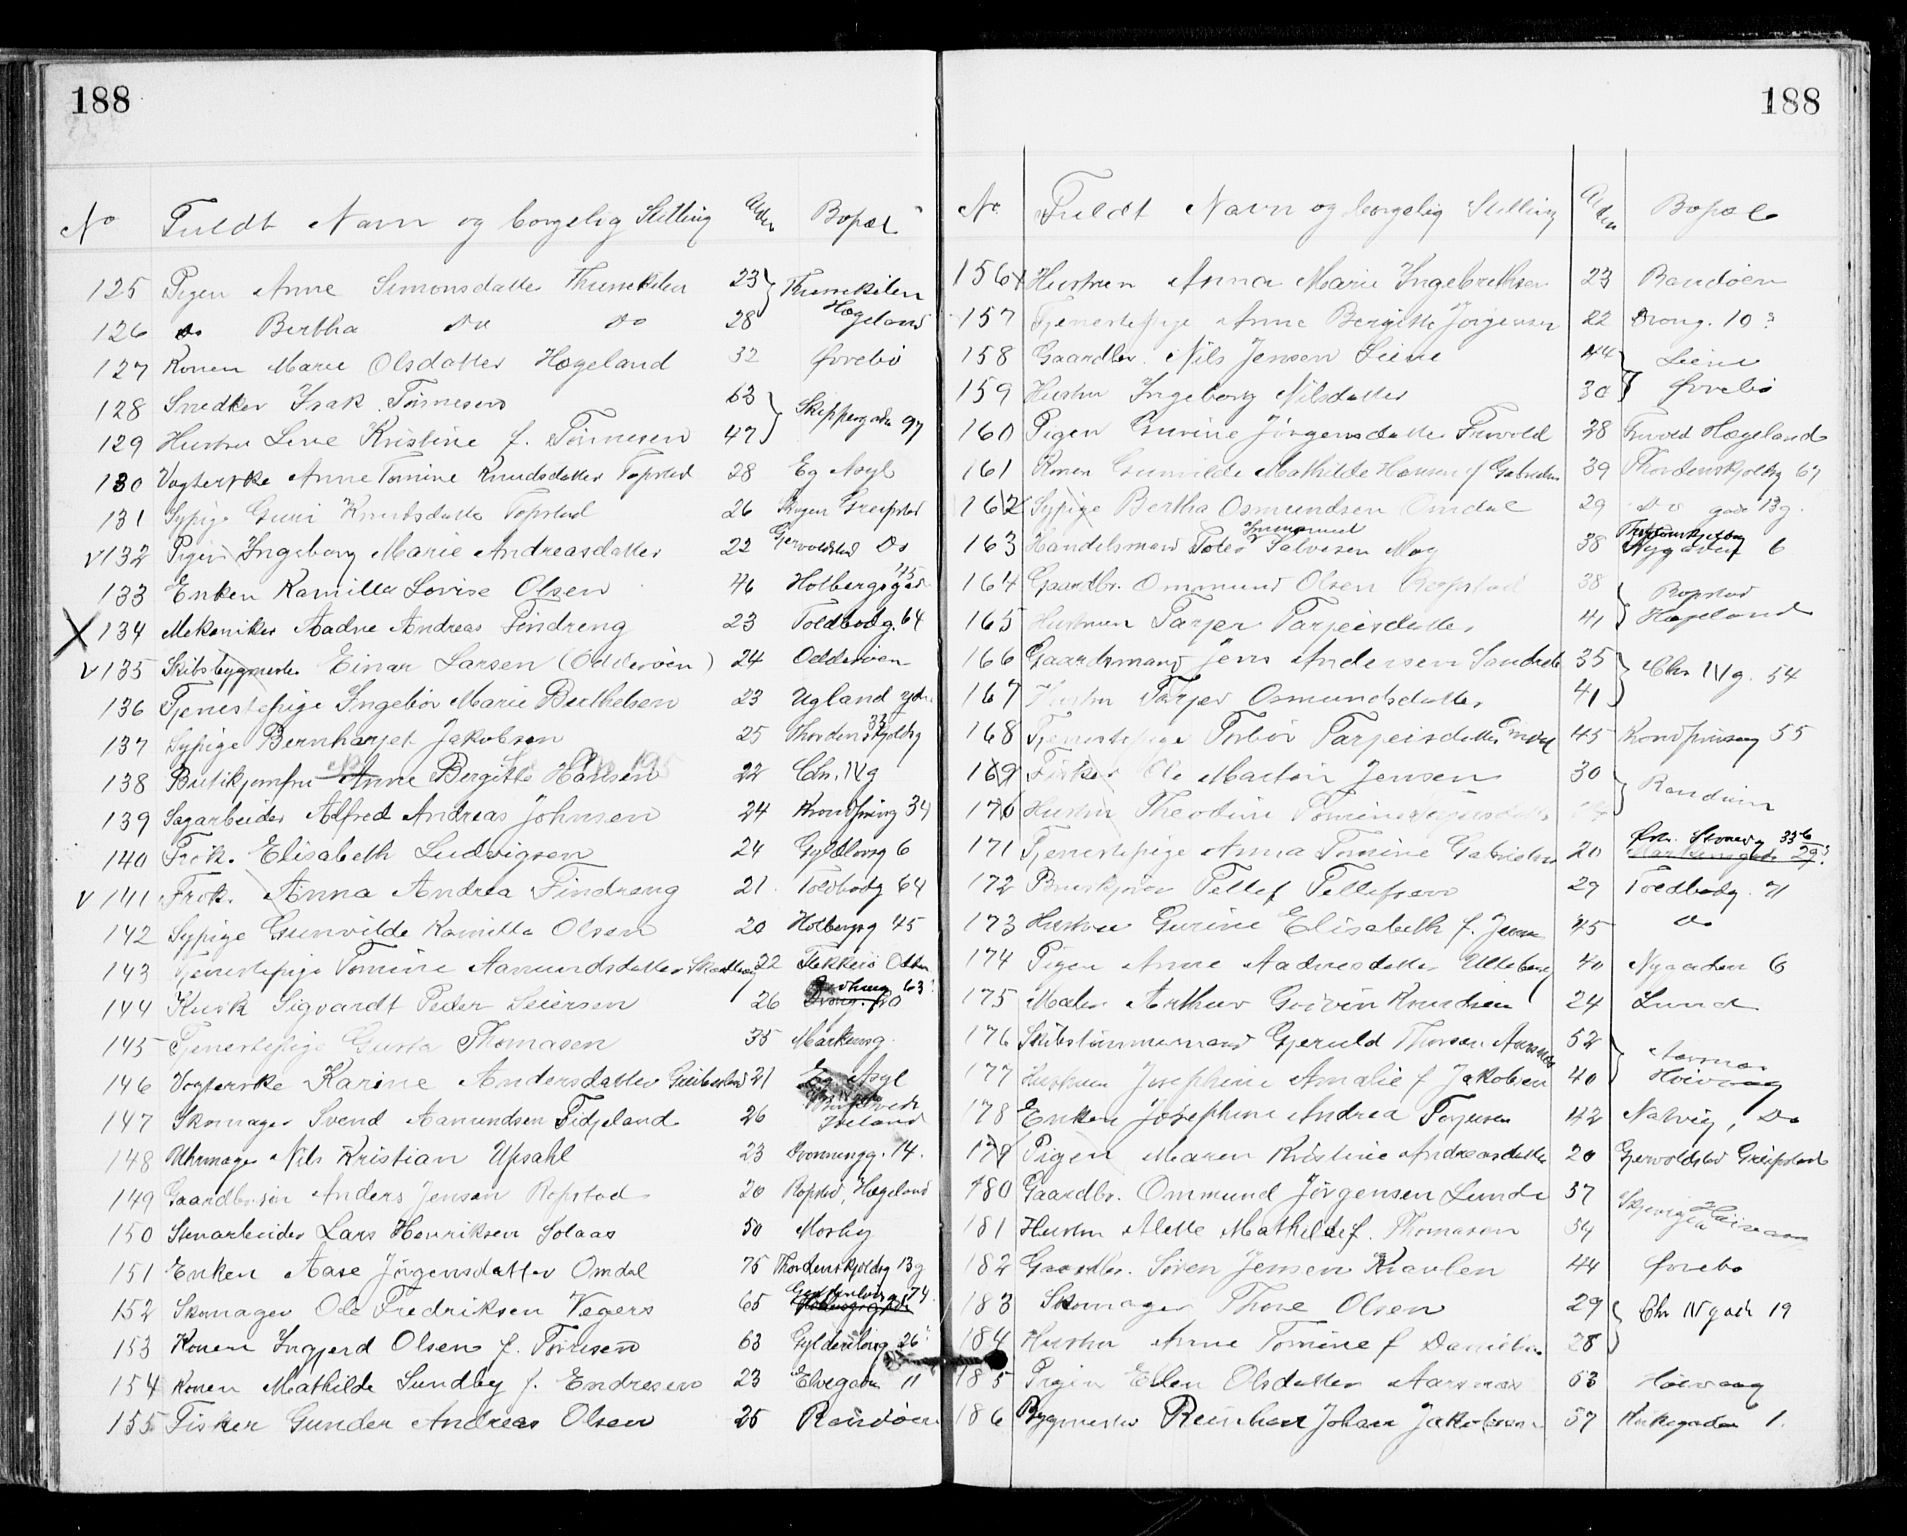 188
No Fuldt Navn og borgelig Stilling Alder Bopæl
125 Pigen Anne Simonsdatter Thumkilen 23 Thumkilen
126 do Bertha Do Do 28 Hægeland
127 Konen Marie Olsdatter Hægeland 32 Øvrebø
128 Snedker Isak Tønnesen 63
129 Hustru Lene Kristine f. Tønnesen 47 Skippergade 97
130 Vogterske Anne Tomine Knudsdatter Topstad 28 Eg Asyl
131 Sypige Guri Knutsdatter Topstad 26 Greipstad
v 132 Pigen Ingeborg Marie Andreasdatter 22 Gjervoldstad Do
133 Enken Kamilla Lovise Olsen 46 Holbergsgad. 45
X 134 Mekaniker Aadne Andreas Findreng 23 Toldbodg. 64
v 135 Skibsbygmester Einar Larsen (Odderøen) 24 Odderøen
136 Tjenestepige Ingebor Marie Berthelsen 23 Ugland
137 Sypige Bernharjet Jakobsen 25 Thordenskjoldsg 33
138 Butikjomfru Anne Bergitte Hansen 22 Chr. IV g
139 Sagarbeider Alfred Andreas Johnsen 24 Kronprinsg 34
140 Frøk. Elisabeth Ludvigsen 24 Gyldlovsg 6
v 141 Frøk. Anna Andrea Findreng 21. Toldbodg 64
142 Sypige Gunvilde Kamilla Olsen 20 Holbergsg 45
143 Tjenestepige Tomine Aamundsdatter 22 Flekkerø
144 Kusk Sigvardt Peder Seiersen 26 63
145 Tjenestepige Gusta Thomasen 35 Markensg.
146 Vogterske Karine Andersdatter 21 Eg Asyl
147 Skomager Svend Aamundsen Fidjeland 26
148 Uhrmager Nils Kristian Upsahl 23 Dronningg. 14.
149 Gaardbrsøn Anders Jensen Ropstad 20 Ropstad, Hægeland
150 Stenarbeider Lars Henriksen Solaas 50 Mosby
151 Enken Aase Jørgensdatter Omdal 75 Thordenskjoldsg 13g
152 Skomager Ole Fredriksen Vegers 65 Gyldenløvsg 74.
153 Konen Ingjerd Olsen f. Tønnesen 63 Gyldenløvsg 26
154 Konen Mathilde Sundby f. Endresen 23 Elvegaden 11
155 Fisker Gunder Andreas Olsen 25 Randøen
188
No Fuldt Navn og borgelig Stilling Alder Bopæl
156 Hustruen Anna Marie Ingebrethsen 23 Randøen
157 Tjenestepige Anne Bergitte Jørgensen 22 Drong. 10
158 Gaardbr. Nils Jensen Leine 44 Leine
159 Hustru Ingeborg Nilsdatter 30 Øvrebø
160 Pigen Gurine Jørgensdatter Fuvold 28 Hægeland
161 Konen Gunvilde Mathilde Hansen f Gabrielsen 39 Thordenskjoldsg 67
162 Sypige Bertha Osmundsen Omdal 29 Do gade 13g.
163 Handelsmand Salvesen Moy 38 6
164 Gaardbr. Ommund Olsen Ropstad 38 Ropstad
165 Hustruen Tarjer Tarjeisdatter 41 Hægeland
166 Gaardsmand Jens Andersen 35 Chr IV g. 54
167 Hustru Tarjer Osmundsdatter 41
168 Tjenestepige Torbor Tarjeisdatter 45 Kronprinseng 55
169 Fisker Ole Martin Jensen 30 Randøen
170 Hustru Theodine Tomine
171 Tjenestepige Anna Tomine Gabrielsen 20
172 Tellef Tellefsen 29 Toldbodg. 71
173 Hustru Gurine Elisabeth f. Jensen 45 Do
174 Pigen Anne Aadnesdatter 40 Nygaden 6
175 Maler Arthur Godvin Knudsen 24 Lund
176 Skibstømmermand Gjeruld Thorsen Aarsnes 52 Aarsnes
177 Hustruen Josephine Amalie f Jakobsen 40 Høivaag
178 Enken Josephine Andrea Torjusen 42 Natvig, Do
179 Pigen Maren Kristine Andreasdatter 20 Gjervoldstad Greipstad
180 Gaardbr. Ommund Jørgensen Lunde 57
181 Hustru Alette Mathilde f. Thomasen 54
182 Gaardbr. Søren Jensen Kravlen 44 Øvrebø
183 Skomager Thore Olsen 29 Chr IV gade 19
184 Hustru Anne Tomine f Danielsen 28
185 Pigen Ellen Olsdatter Aarsnes 53 Høivaag
186 Bygmester Reinhart Johan Jakobsen 57 Kirkegaden 1.